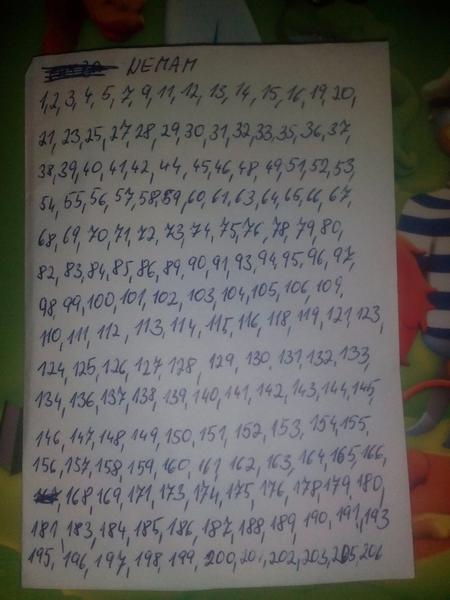 NEMAM
1,2,3,4,5,7,9,11,12,13,14,15,16,19,20,
21,23,25,27,28,29,30,31,32,33,35,36,37,
38,39,40,41,42,44,45,46,48,49,51,52,53,
54,55,56,57,58,59,60,61,63,64,65,66,67,
68,69,70,71,72,73,74,75,76,78,79,80,
82,83,84,85,86,89,90,91,93,94,95,96,97,
98,99,100,101,102,103,104,105,106,109,
110,111,112,113,114,115,116,118,119,121,123,
124,125,126,127,128,129,130,131,132,133,
134,136,137,138,139,140,141,142,143,144,145,
146,147,148,149,150,151,152,153,154,155,
156,157,158,159,160,161,162,163,164,165,166,
168,169,171,173,174,175,176,178,179,180,
181,183,184,185,186,187,188,189,190,191,193
195,196,197,198,199,200,201,202,203,205,206